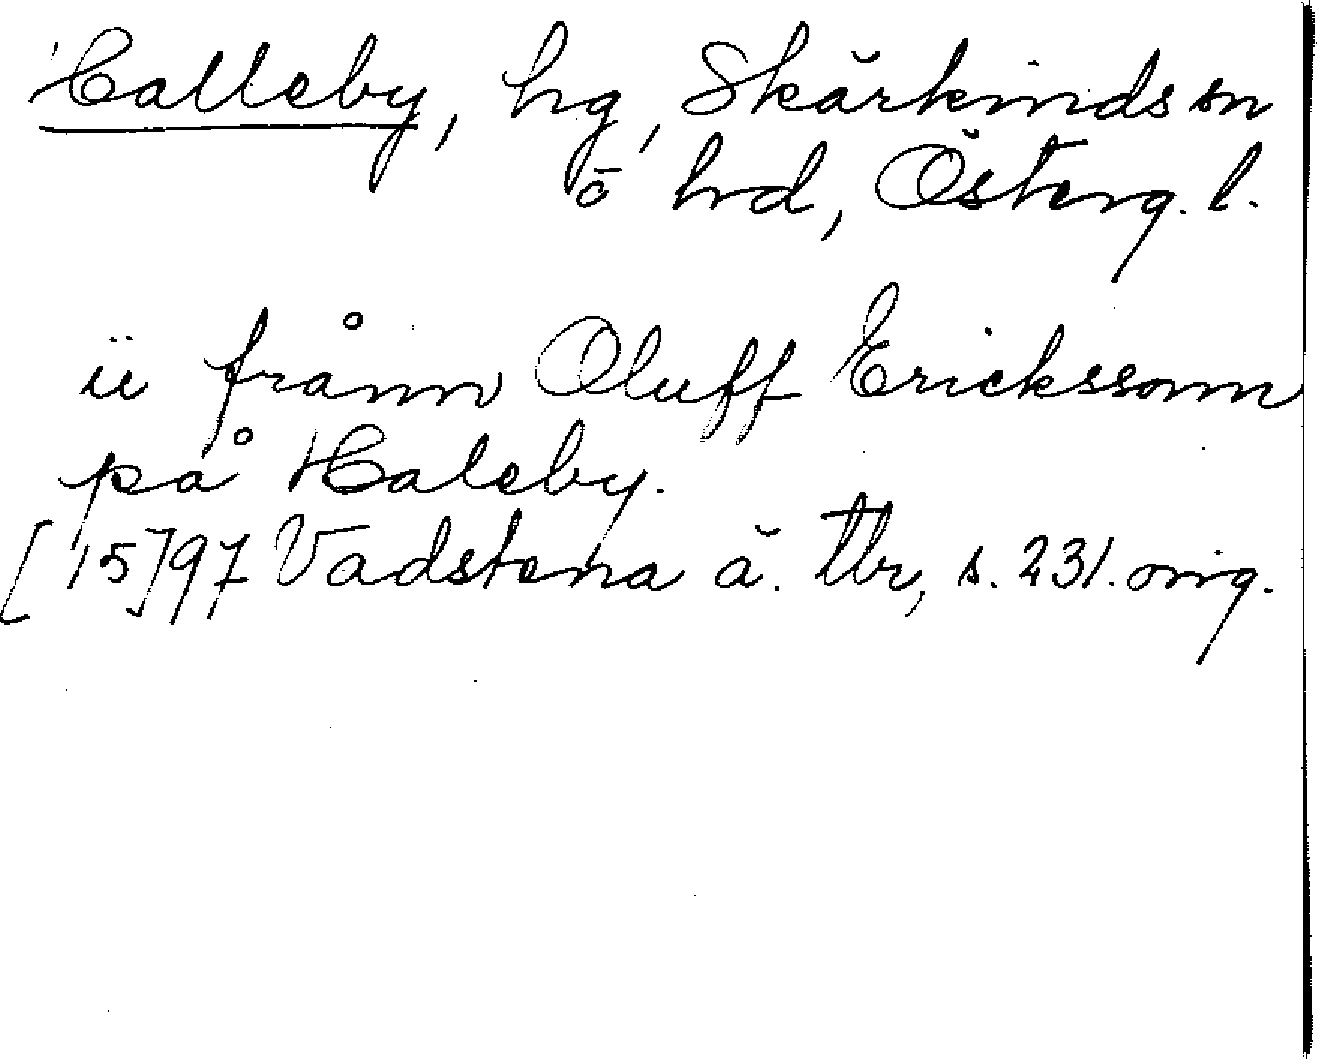 Halleby, hg, Skärkinds sn
o hrd, Österg. l.
ii frånn Oluff Erickssonn
på Haleby.
[15]97 Vadstena ä. tbr, s. 231. orig.